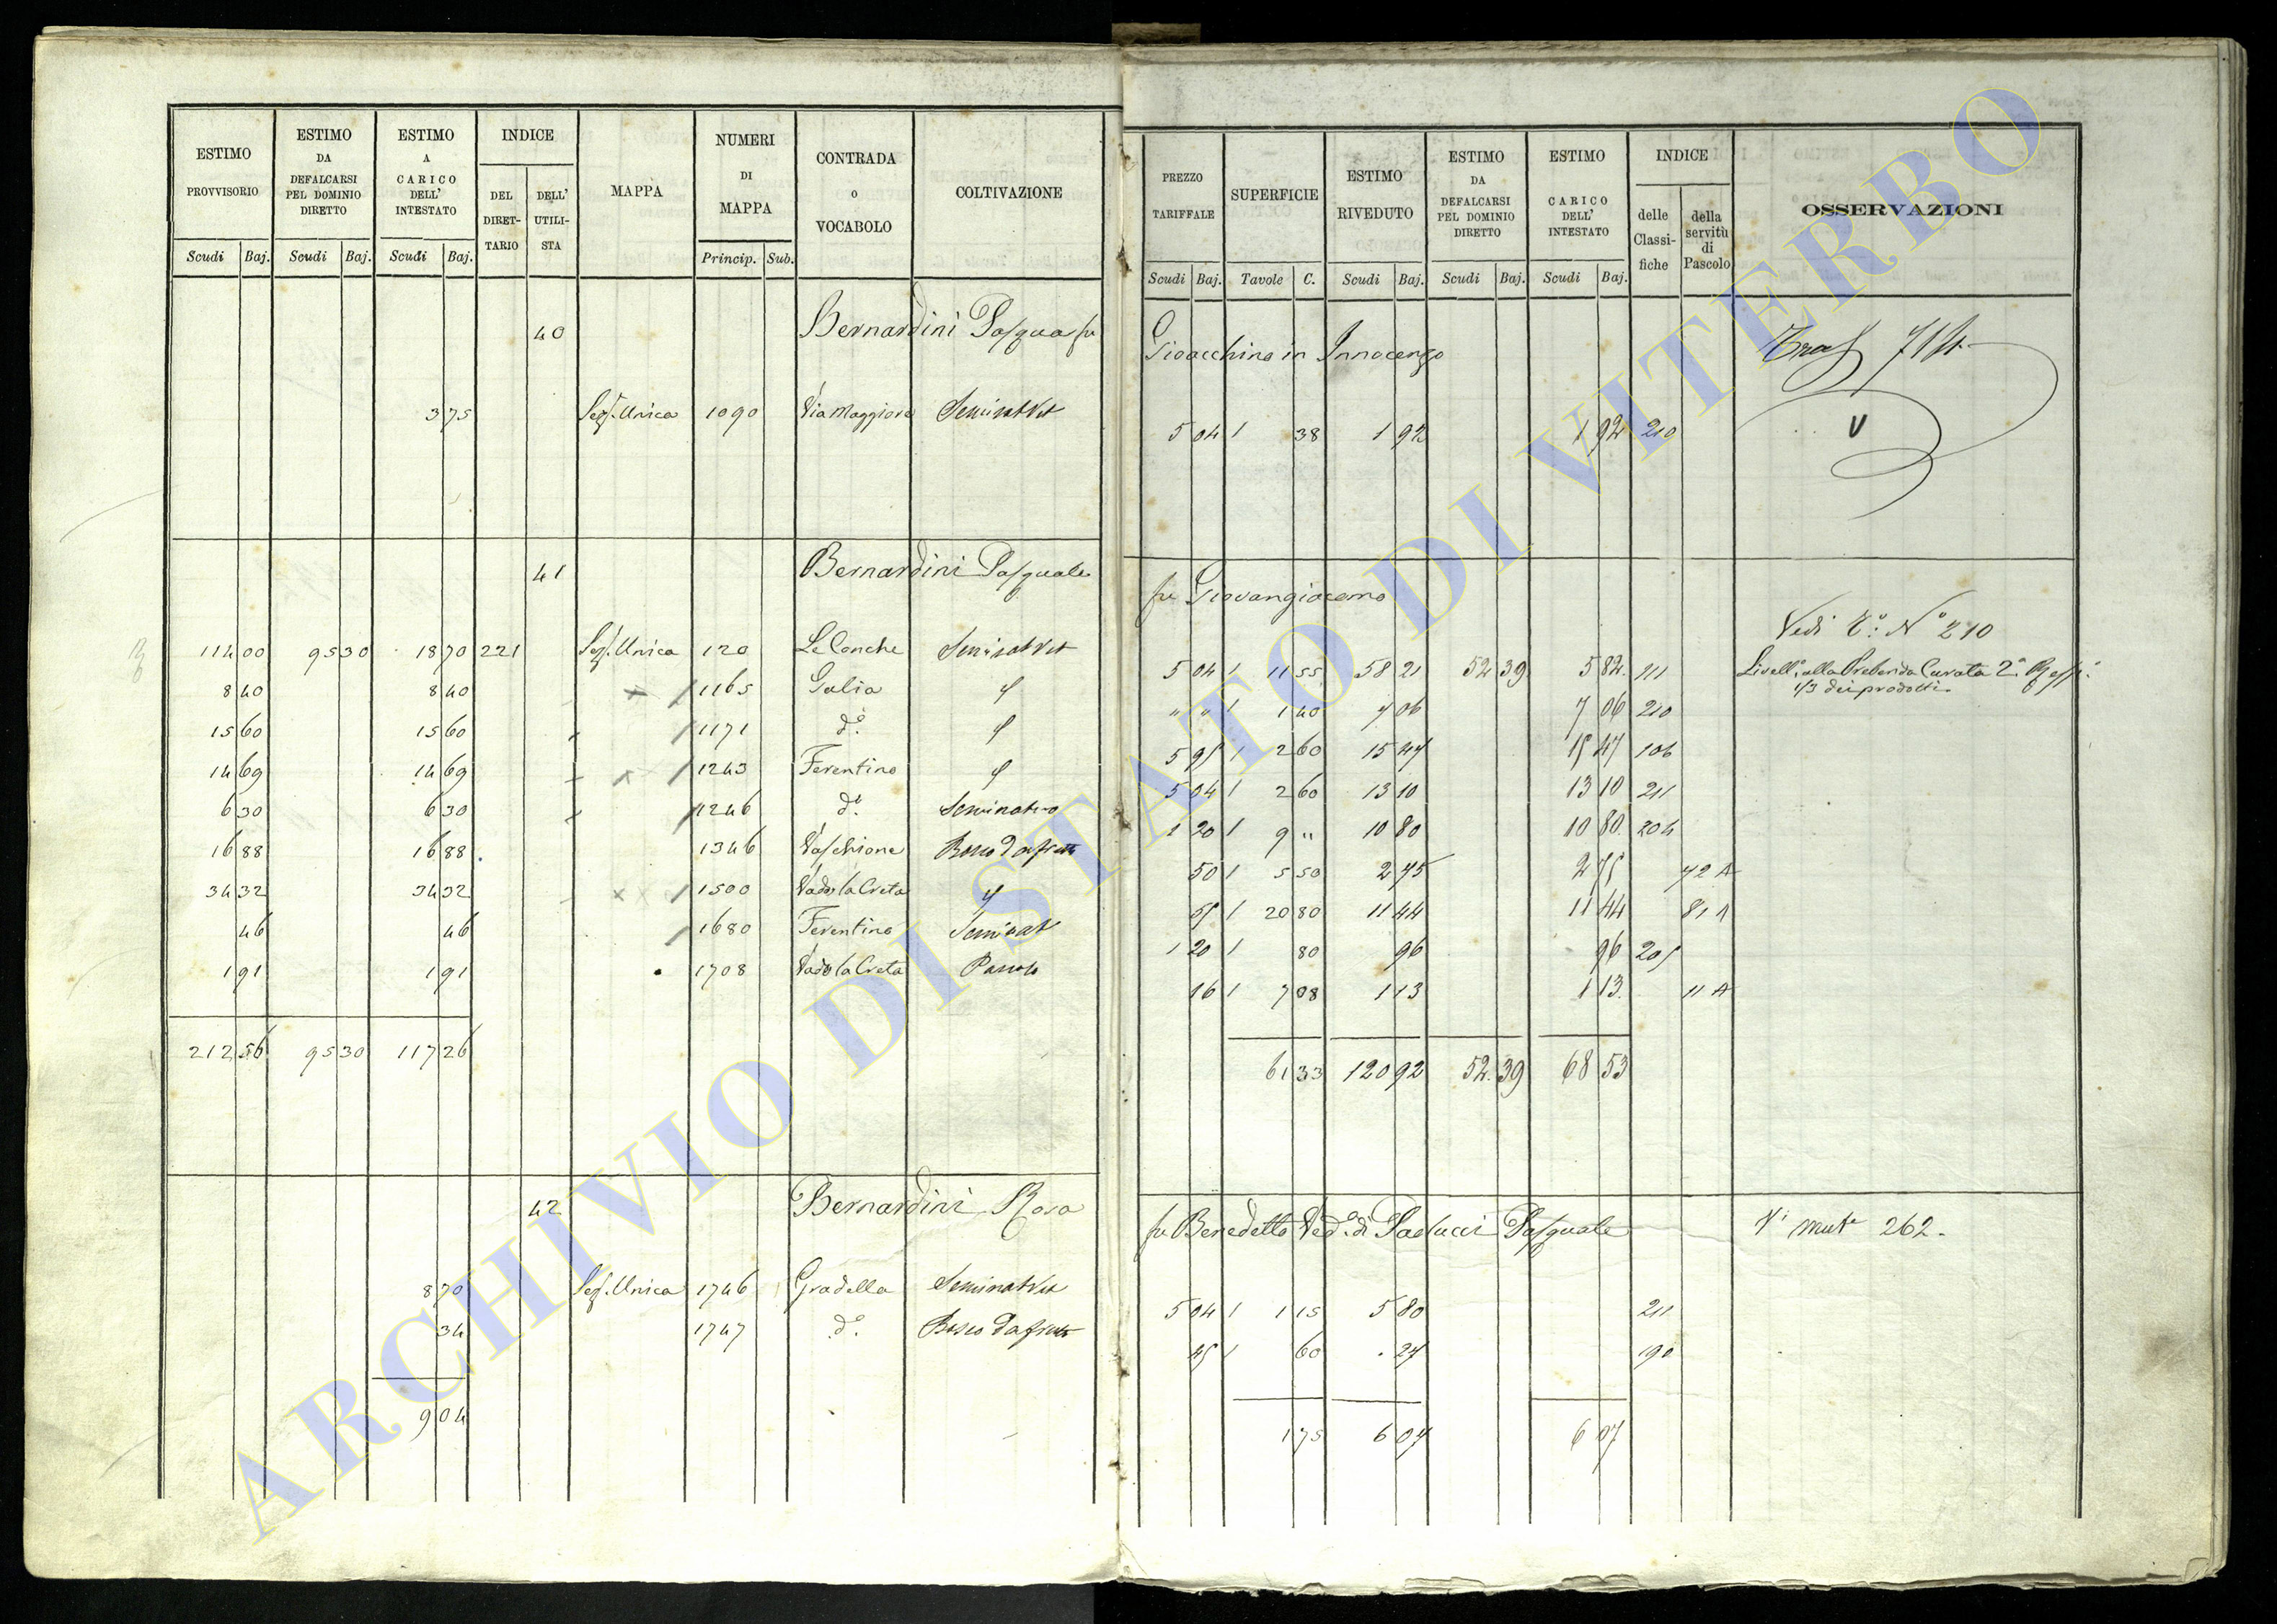 ESTIMO PROVVISORIO | ESTIMO DA DEFALCARSI PEL DOMINIO DIRETTO | ESTIMO A CARICO DELL' INTESTATO | INDICE | MAPPA | NUMERI DI MAPPA | CONTRADA o VOCABOLO | COLTIVAZIONE
DEL DIRETTARIO | DELL' UTILISTA
Scudi Baj. | Scudi Baj. | Scudi Baj. | Princip. Sub.
40 Bernardini Pasqua fu
3 75 Sez. Unica 1090 Via Maggiore Seminat Vit
41 Bernardini Pasquale
114 00 95 30 18 70 221 Sez. Unica 120 Le Conche Seminat Vit
8 40 8 40 1165 Galia
15 60 15 60 1171 do.
14 69 14 69 1243 Ferentino
6 30 6 30 1246 do. Seminativo
16 88 16 88 1346 Vaschione Bosco da frutto
34 32 34 32 1500 Vado la Creta
46 46 1680 Ferentino Seminat
1 91 1 91 1708 Vado la Creta Pascolo
212 56 95 30 117 26
42 Bernardini Rosa
8 70 Sez. Unica 1746 Gradella Seminat Vit
34 1747 do. Bosco da frutto
9 04
PREZZO TARIFFALE | SUPERFICIE | ESTIMO RIVEDUTO | ESTIMO DA DEFALCARSI PEL DOMINIO DIRETTO | ESTIMO CARICO DELL' INTESTATO | INDICE | OSSERVAZIONI
delle Classifiche | della servitù di Pascolo
Scudi Baj. | Tavole C. | Scudi Baj. | Scudi Baj. | Scudi Baj.
Gioacchino in Innocenzo
5 04 1 38 1 92 1 92 210 V
fu Giovangiacomo
Vedi No 210
5 04 1 11 55 58 21 52 39 5 82 111 Livello alla Prebenda Curata 2a
1/3 dei prodotti
" " 1 1 40 7 06 7 06 210
5 95 1 2 60 15 47 15 47 106
5 04 1 2 60 13 10 13 10 211
1 20 1 9 " 10 80 10 80 204
50 1 5 50 2 75 2 75 72 A
55 1 20 80 11 44 11 44 81 A
1 20 1 80 96 96 205
16 1 7 08 1 13 1 13 11 A
61 33 120 92 52 39 68 53
fu Benedetto Ved. di Paolucci Pasquale
Vi mut 262.
5 04 1 1 15 5 80 211
45 1 60 27 190
1 75 6 07 6 07
ARCHIVIO DI STATO DI VITERBO